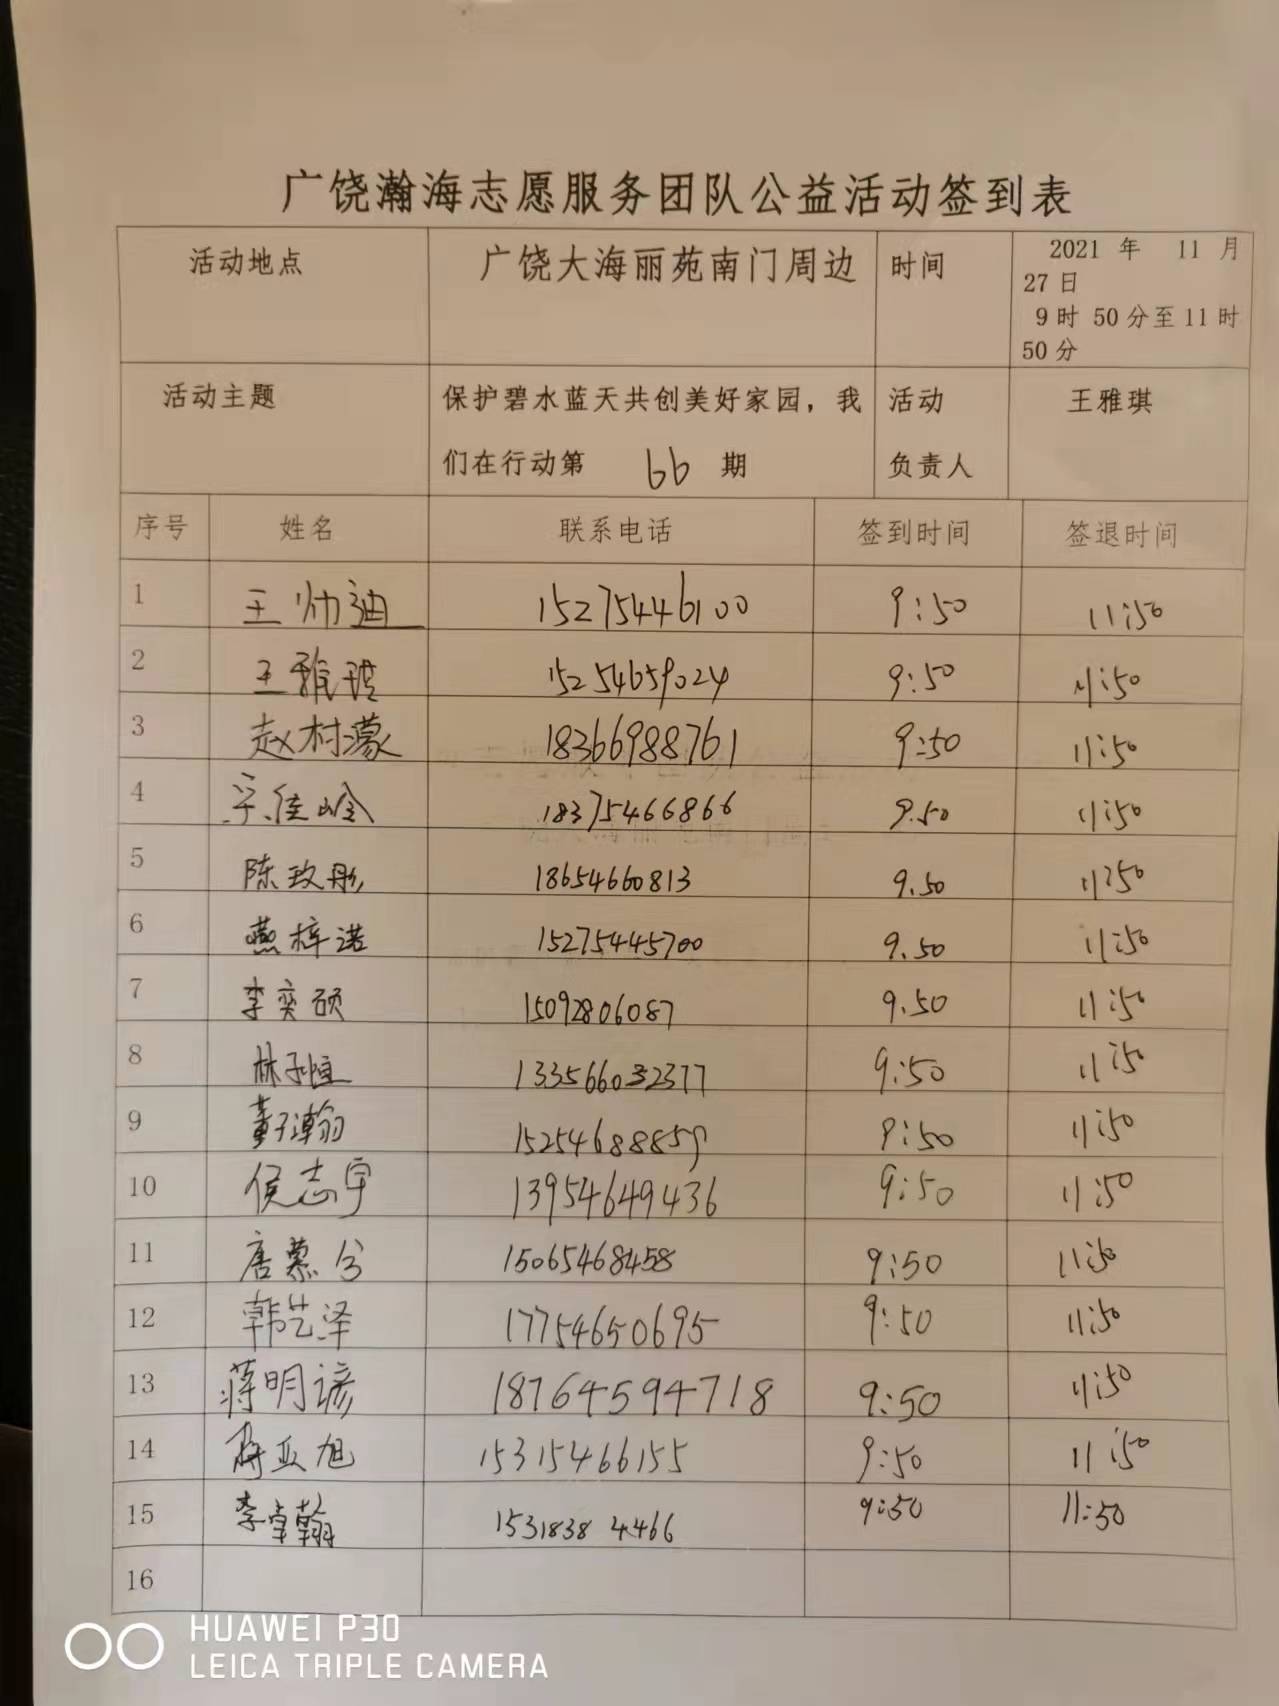 广饶瀚海志愿服务团队公益活动签到表
活动地点 广饶大海丽苑南门周边 时间 2021 年 11 月
27日
9时 50分至11时
50分
活动主题 保护碧水蓝天共创美好家园，我 活动 王雅琪
们在行动第 66 期 负责人
序号 姓名 联系电话 签到时间 签退时间
1 王帅迪 15275446100 9:50 11:50
2 王雅琪 15254659024 9:50 11:50
3 赵村濛 18366988761 9:50 11:50
4 佳岭 18375466866 9.50 11:50
5 陈玫彤 18654660813 9.50 11:50
6 燕梓诺 15275445700 9.50 11:50
7 李奕硕 15092806087 9.50 11:50
8 林子恒 9:50 11:50
9 董子瀚 15254688859 9:50 11:50
10 侯志宇 13954649436 9:50 11:50
11 唐慕兮 15065468458 9:50 11:50
12 韩艺泽 17754650695 9:50 11:50
13 蒋明谚 18764594718 9:50 11:50
14 亚旭 15315466155 9:50 11:50
15 李 翰 15318384466 9:50 11:50
16
HUAWEI P30
LEICA TRIPLE CAMERA